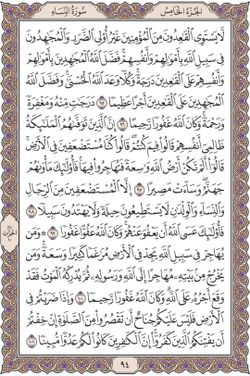 الجزء الخامس
سورة النساء
لا يستوي القاعدون من المؤمنين غير أولي الضرر والمجاهدون
في سبيل الله بأموالهم وأنفسهم فضل الله المجاهدين بأموالهم
وأنفسهم على القاعدين درجة وكلا وعد الله الحسنى وفضل الله
المجاهدين على القاعدين أجرا عظيما ٩٥ درجات منه ومغفرة
ورحمة وكان الله غفورا رحيما ٩٦ إن الذين توفاهم الملائكة
ظالمي أنفسهم قالوا فيم كنتم قالوا كنا مستضعفين في الأرض
قالوا ألم تكن أرض الله واسعة فتهاجروا فيها فأولئك مأواهم
جهنم وساءت مصيرا ٩٧ إلا المستضعفين من الرجال
والنساء والولدان لا يستطيعون حيلة ولا يهتدون سبيلا ٩٨
فأولئك عسى الله أن يعفو عنهم وكان الله عفوا غفورا ٩٩ ومن
يهاجر في سبيل الله يجد في الأرض مراغما كثيرا وسعة ومن
يخرج من بيته مهاجرا إلى الله ورسوله ثم يدركه الموت فقد
وقع أجره على الله وكان الله غفورا رحيما ١٠٠ وإذا ضربتم في
الأرض فليس عليكم جناح أن تقصروا من الصلاة إن خفتم
أن يفتنكم الذين كفروا إن الكافرين كانوا لكم عدوا مبينا ١٠١
٩٤